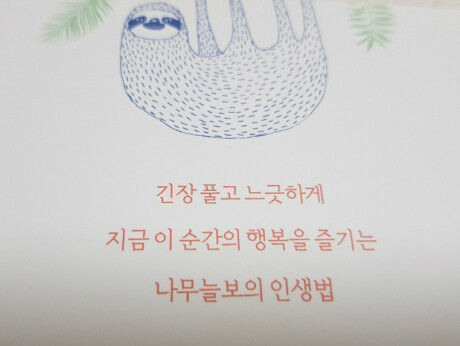 긴장 풀고 느긋하게
지금 이 순간의 행복을 즐기는
나무늘보의 인생법